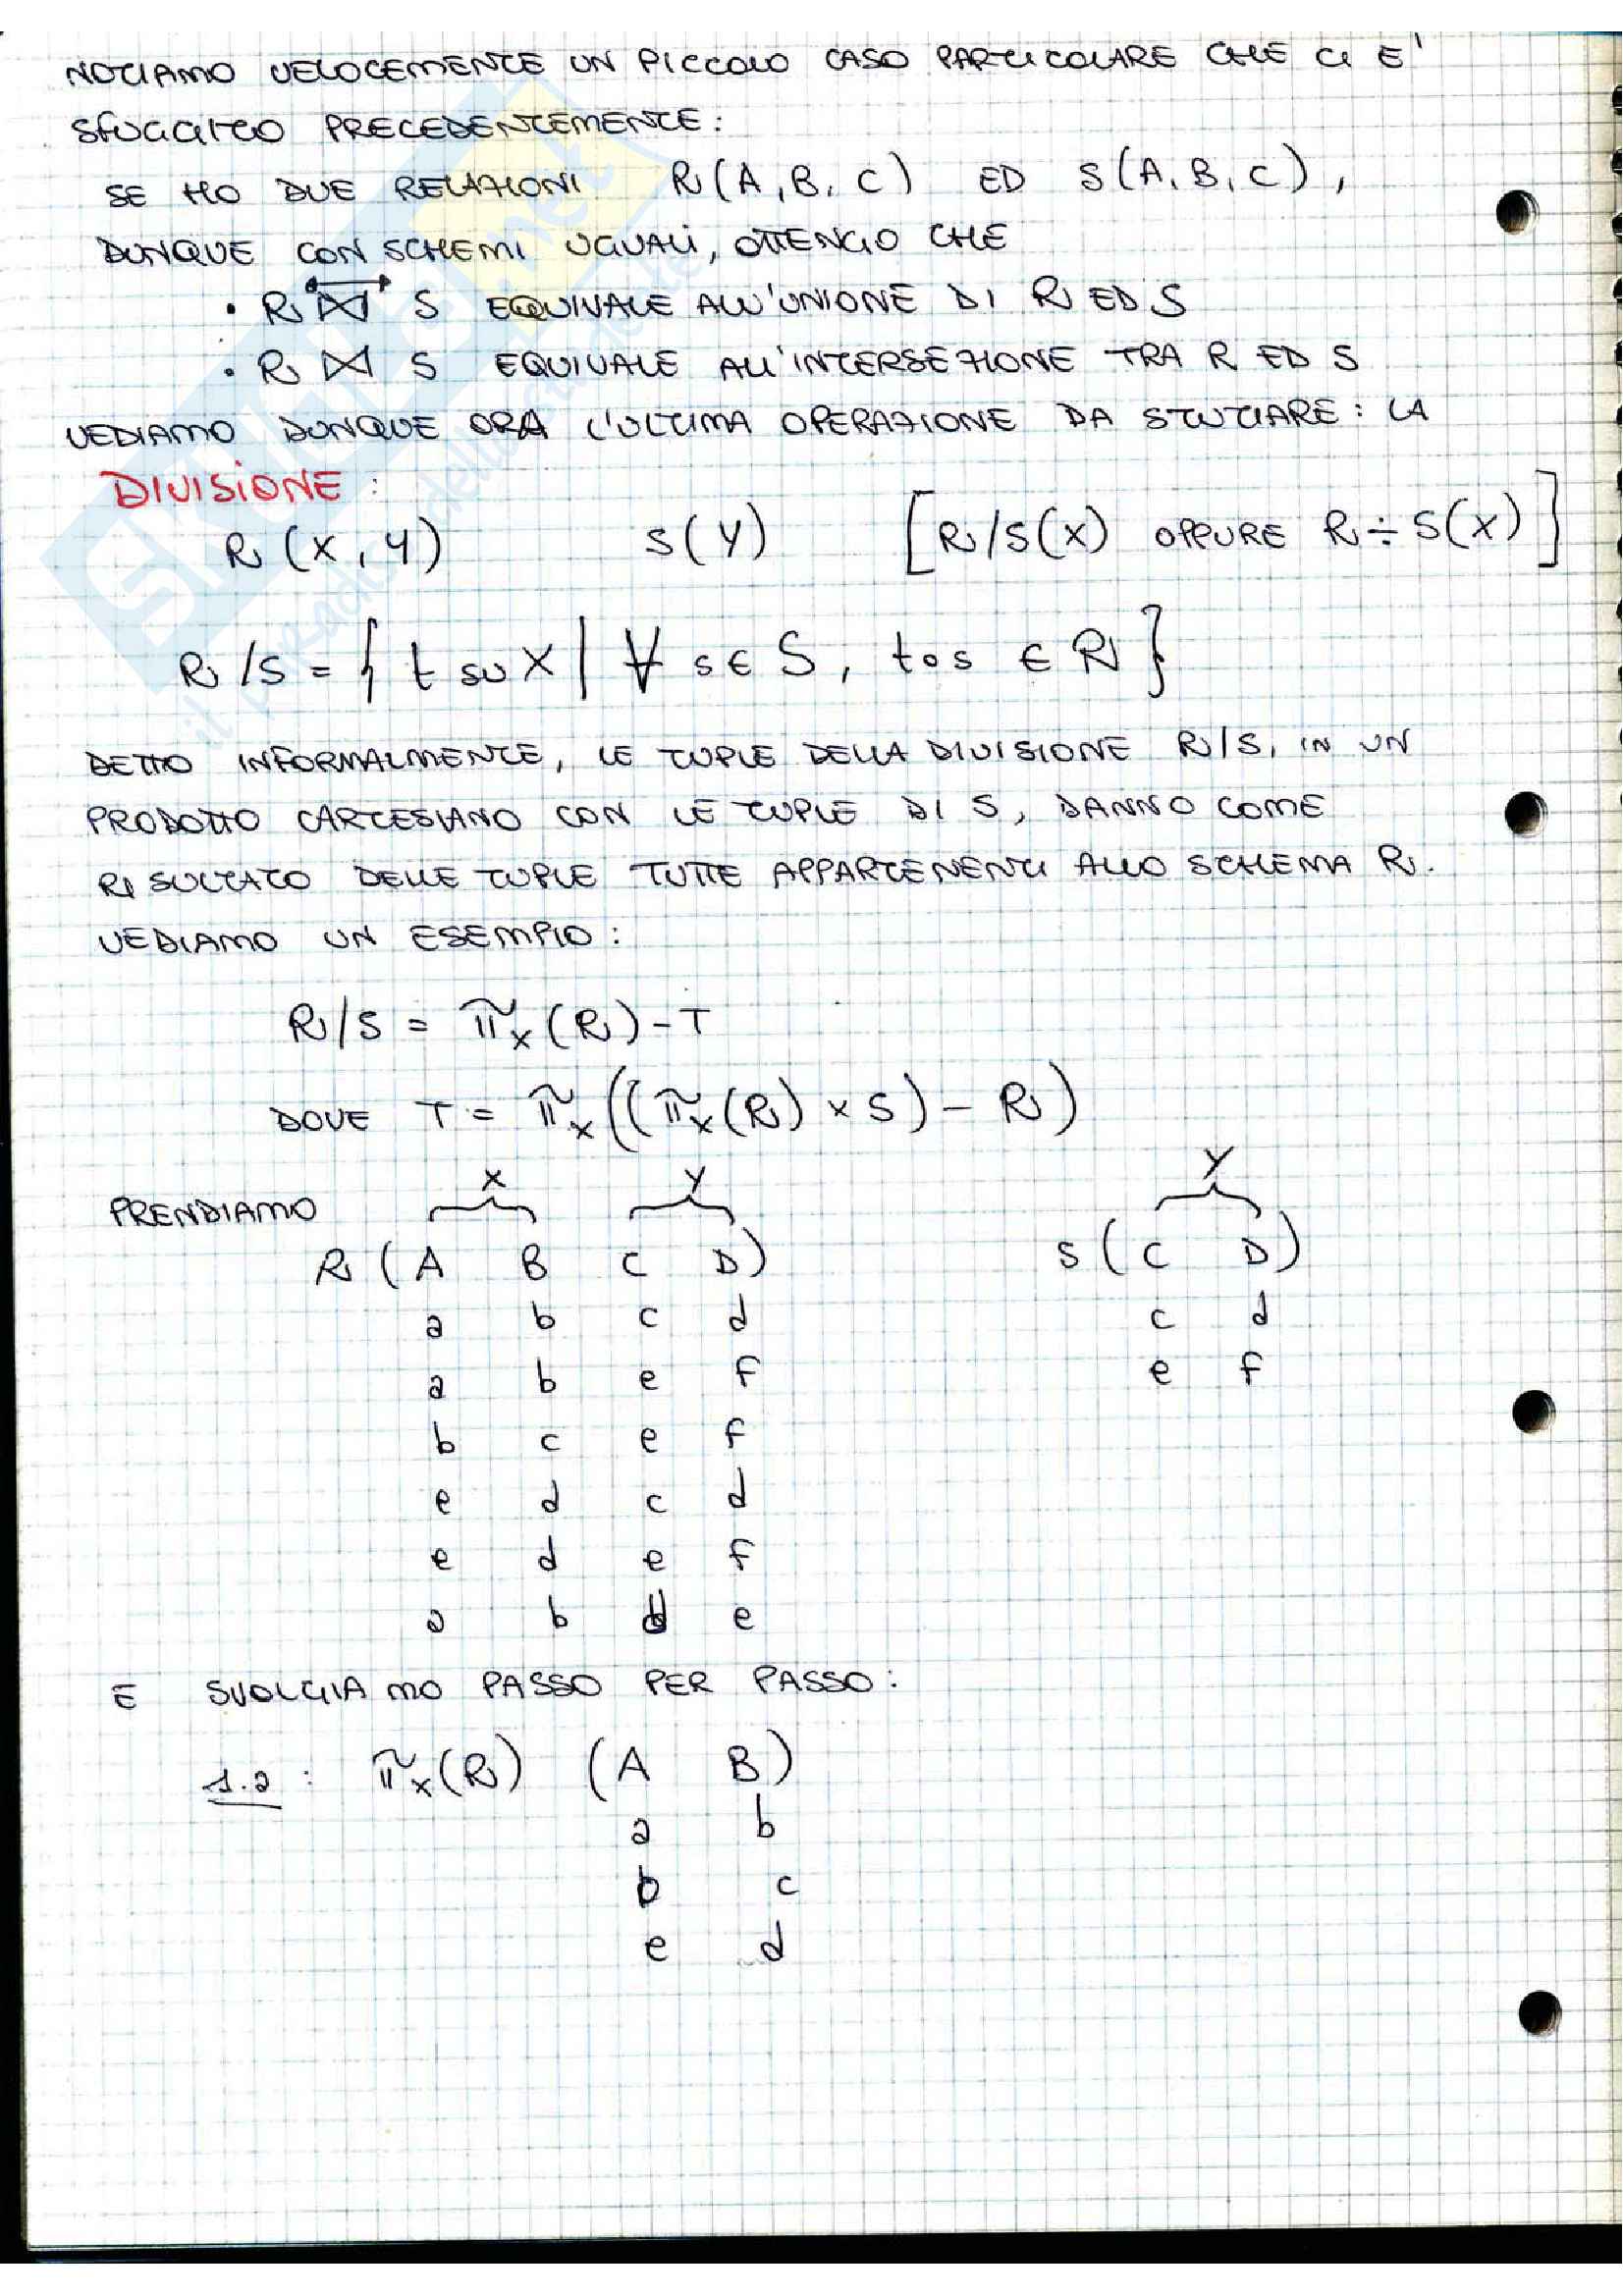 NOTIAMO VELOCEMENTE UN PICCOLO CASO PARTICOLARE CHE CI E'
SFUGGITO PRECEDENTEMENTE:
SE HO DUE RELAZIONI R(A,B,C) ED S(A,B,C),
DUNQUE CON SCHEMI UGUALI, OTTENGO CHE
• R ⟗ S EQUIVALE ALL'UNIONE DI R ED S
• R ⋈ S EQUIVALE ALL'INTERSEZIONE TRA R ED S
VEDIAMO DUNQUE ORA L'ULTIMA OPERAZIONE DA STUDIARE: LA
DIVISIONE:
R(X,Y) S(Y) [R/S(X) OPPURE R÷S(X)]
R/S = { t su X | ∀ s ∈ S, t∘s ∈ R }
DETTO INFORMALMENTE, LE TUPLE DELLA DIVISIONE R/S, IN UN
PRODOTTO CARTESIANO CON LE TUPLE DI S, DANNO COME
RISULTATO DELLE TUPLE TUTTE APPARTENENTI ALLO SCHEMA R.
VEDIAMO UN ESEMPIO:
R/S = π_X(R) - T
DOVE T = π_X((π_X(R) × S) - R)
X Y Y
PRENDIAMO
R (A B C D) S (C D)
a b c d c d
a b e f e f
b c e f
e d c d
e d e f
a b d e
E SVOLGIAMO PASSO PER PASSO:
1.a : π_X(R) (A B)
a b
b c
e d
SKUOLA.net